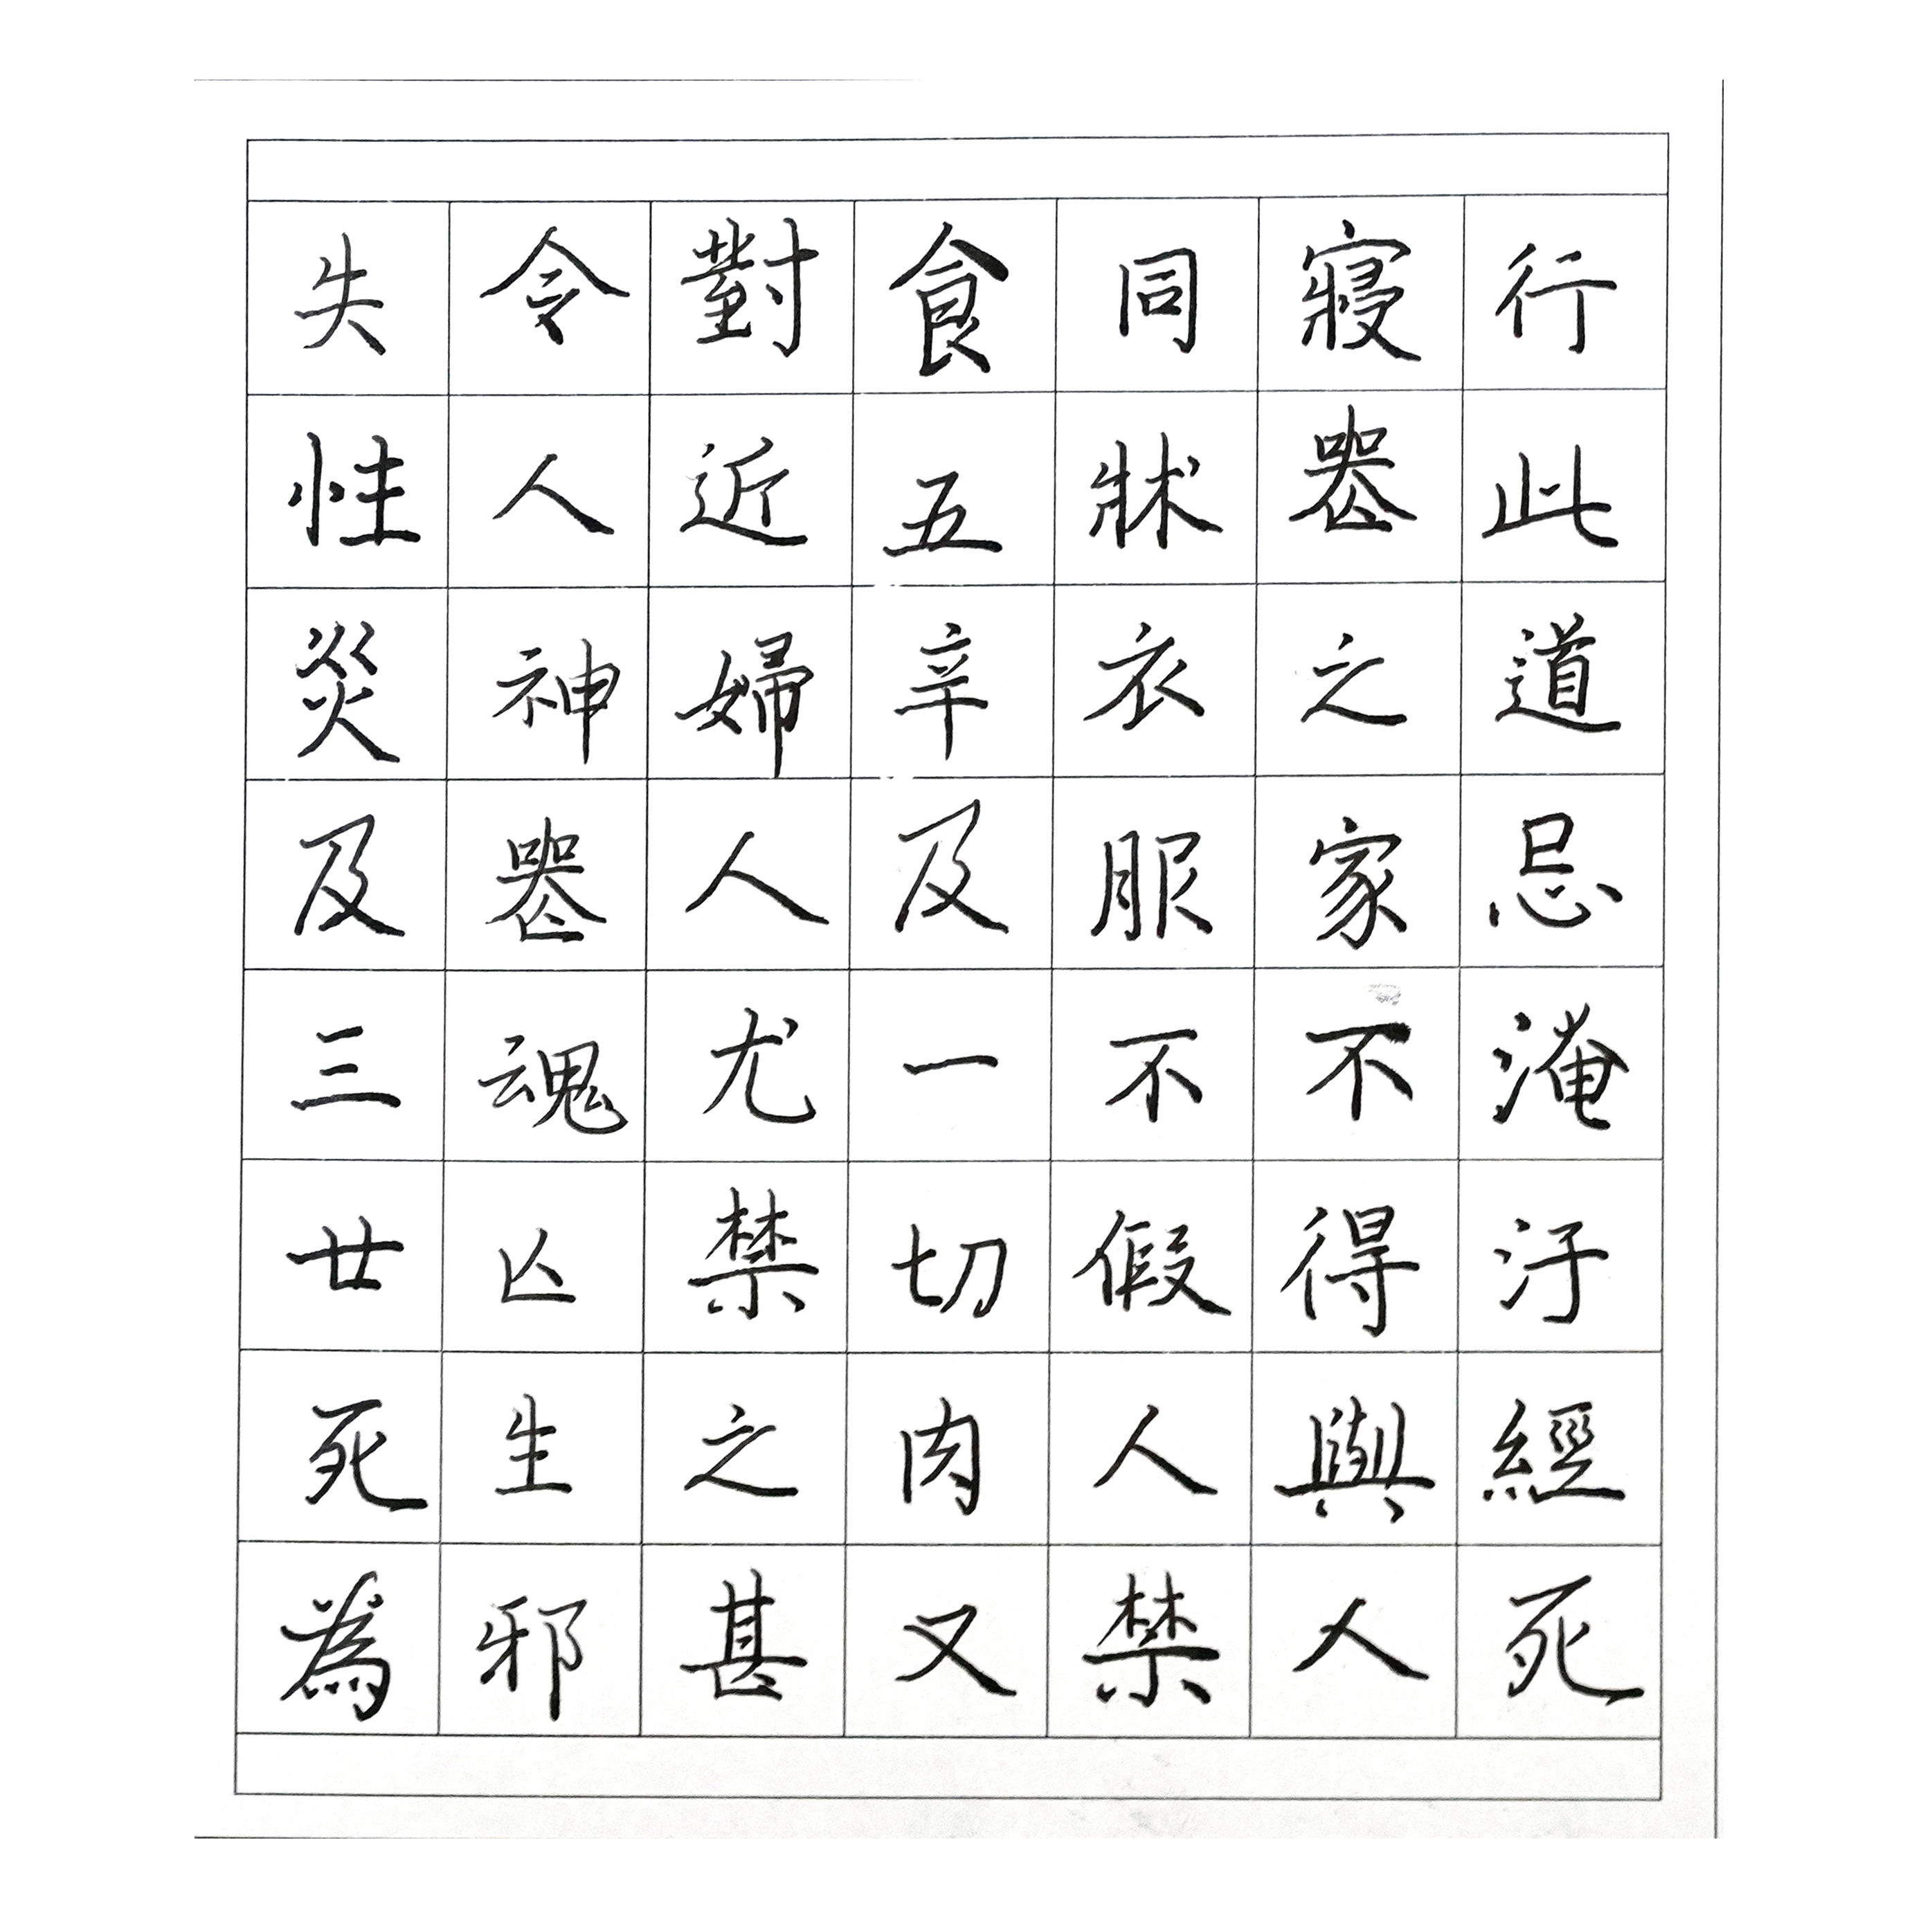 行此道忌淹汙經死
寢喪之家不得與人
同牀衣服不假人禁
食五辛及一切肉又
對近婦人尤禁之甚
令人神喪魂亾生邪
失性災及三廿死為